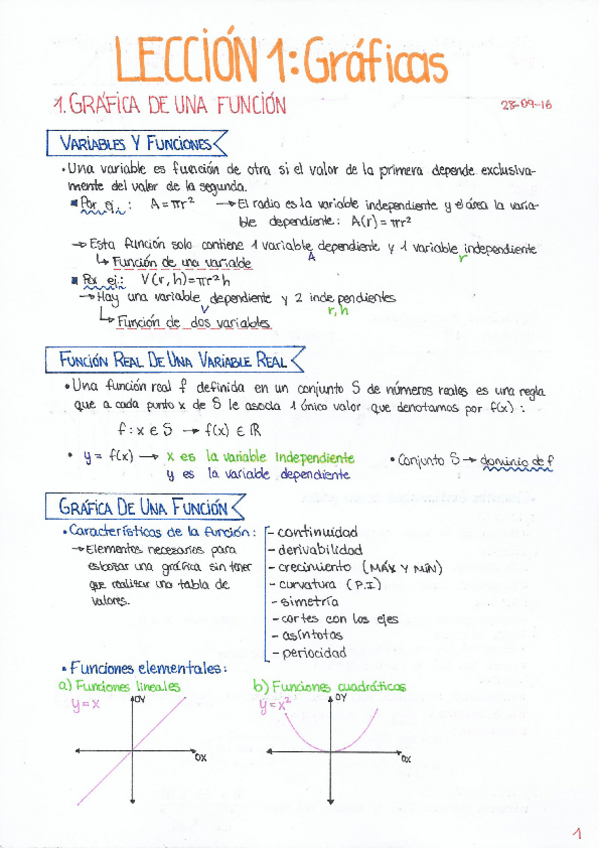 LECCIÓN 1: Gráficas
1. GRÁFICA DE UNA FUNCIÓN
28-09-16
VARIABLES Y FUNCIONES
• Una variable es función de otra si el valor de la primera depende exclusiva-
mente del valor de la segunda.
Por ej.: A=πr² → El radio es la variable independiente y el área la varia-
ble dependiente: A(r)=πr²
→ Esta función solo contiene 1 variable dependiente y 1 variable independiente
A r
↳ Función de una variable
Por ej.: V(r,h)=πr²h
→ Hay una variable dependiente y 2 independientes
V r,h
↳ Función de dos variables.
FUNCIÓN REAL DE UNA VARIABLE REAL
• Una función real f definida en un conjunto S de números reales es una regla
que a cada punto x de S le asocia 1 único valor que denotamos por f(x):
f: x ∈ S → f(x) ∈ ℝ
• y = f(x) → x es la variable independiente
y es la variable dependiente
• Conjunto S → dominio de f
GRÁFICA DE UNA FUNCIÓN
• Características de la función:
→ Elementos necesarios para
esbozar una gráfica sin tener
que realizar una tabla de
valores.
- continuidad
- derivabilidad
- crecimiento (MÁX Y MÍN)
- curvatura (P.I)
- simetría
- cortes con los ejes
- asíntotas
- periocidad
• Funciones elementales:
a) Funciones lineales
y=x
OY
OX
b) Funciones cuadráticas
y=x²
OY
OX
1